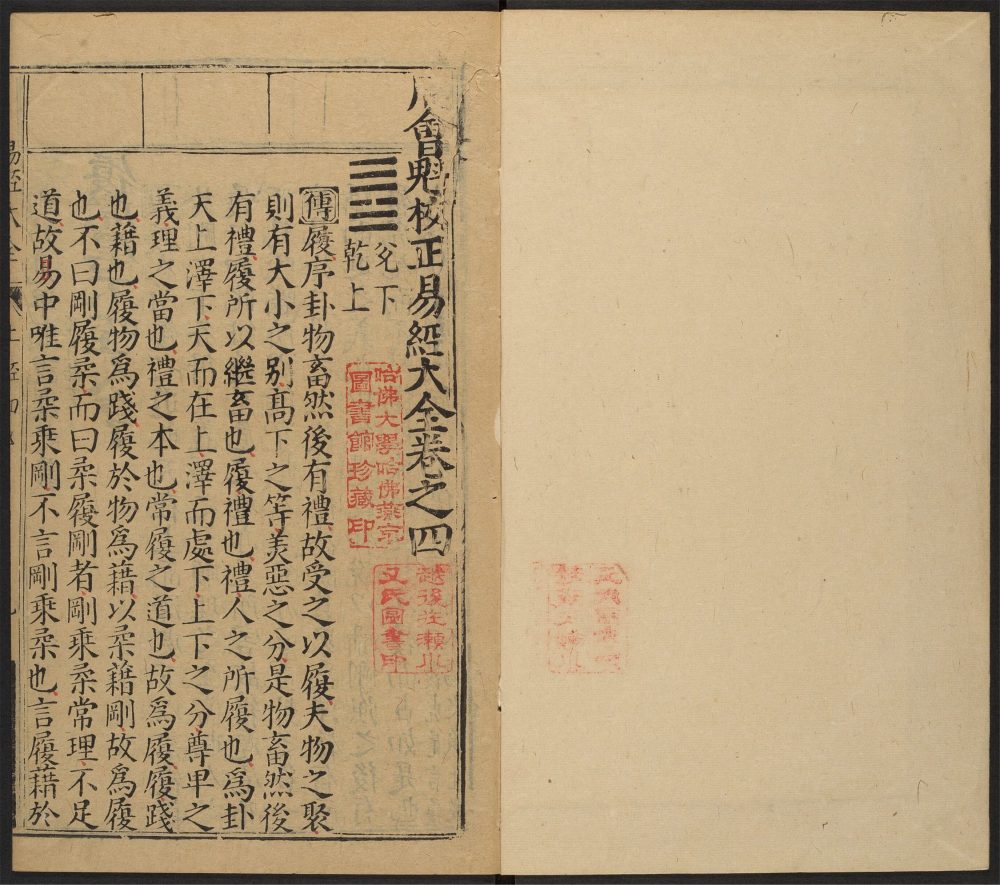 周會魁校正易經大全卷之四
兌下
乾上
傳履序卦物畜然後有禮故受之以履夫物之聚
則有大小之别高下之等美惡之分是物畜然後
有禮履所以繼畜也履禮也禮人之所履也為卦
天上澤下天而在上澤而處下上下之分尊卑之
義理之當也禮之本也常履之道也故為履履踐
也藉也履物為踐履於物為藉以柔藉剛故為履
也不曰剛履柔而曰柔履剛者剛乘柔常理不足
道故易中唯言柔乘剛不言剛乘柔也言履藉於
易經大全
哈佛大學哈佛燕京
圖書館珍藏印